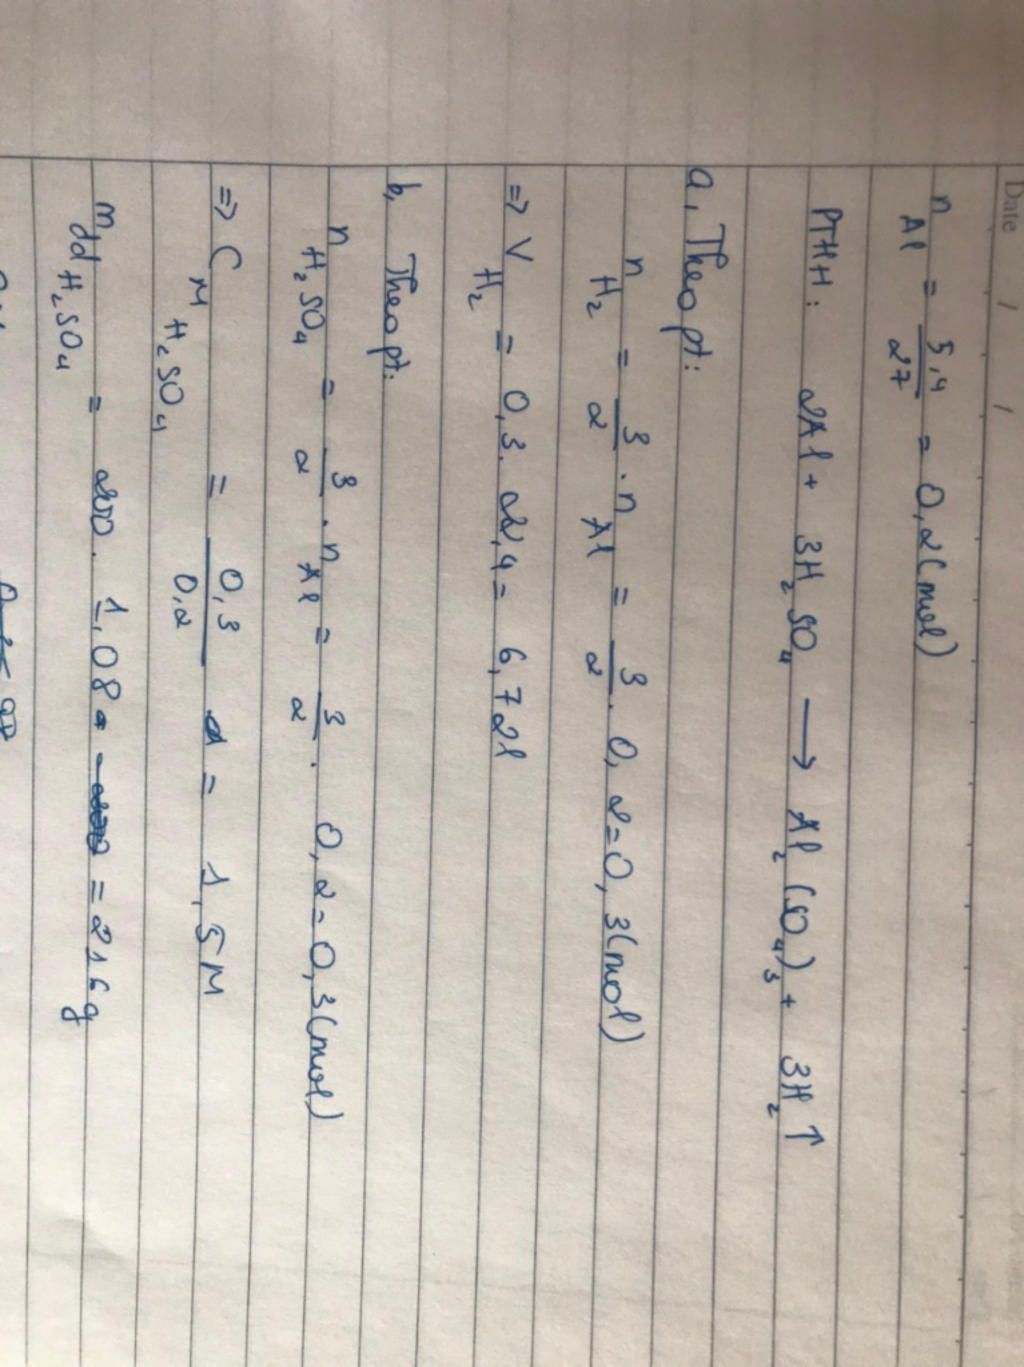 Date / /
n Al = 5,4/27 = 0,2(mol)
PTHH: 2Al + 3H₂SO₄ ⟶ Al₂(SO₄)₃ + 3H₂↑
a, Theo pt:
n H₂ = 3/2 . n Al = 3/2 . 0,2 = 0,3(mol)
=> V H₂ = 0,3. 22,4 = 6,72l
b, Theo pt:
n H₂SO₄ = 3/2 . n Al = 3/2 . 0,2 = 0,3(mol)
=> C M H₂SO₄ = 0,3/0,2 = 1,5M
m dd H₂SO₄ = 200. 1,08 = 216g